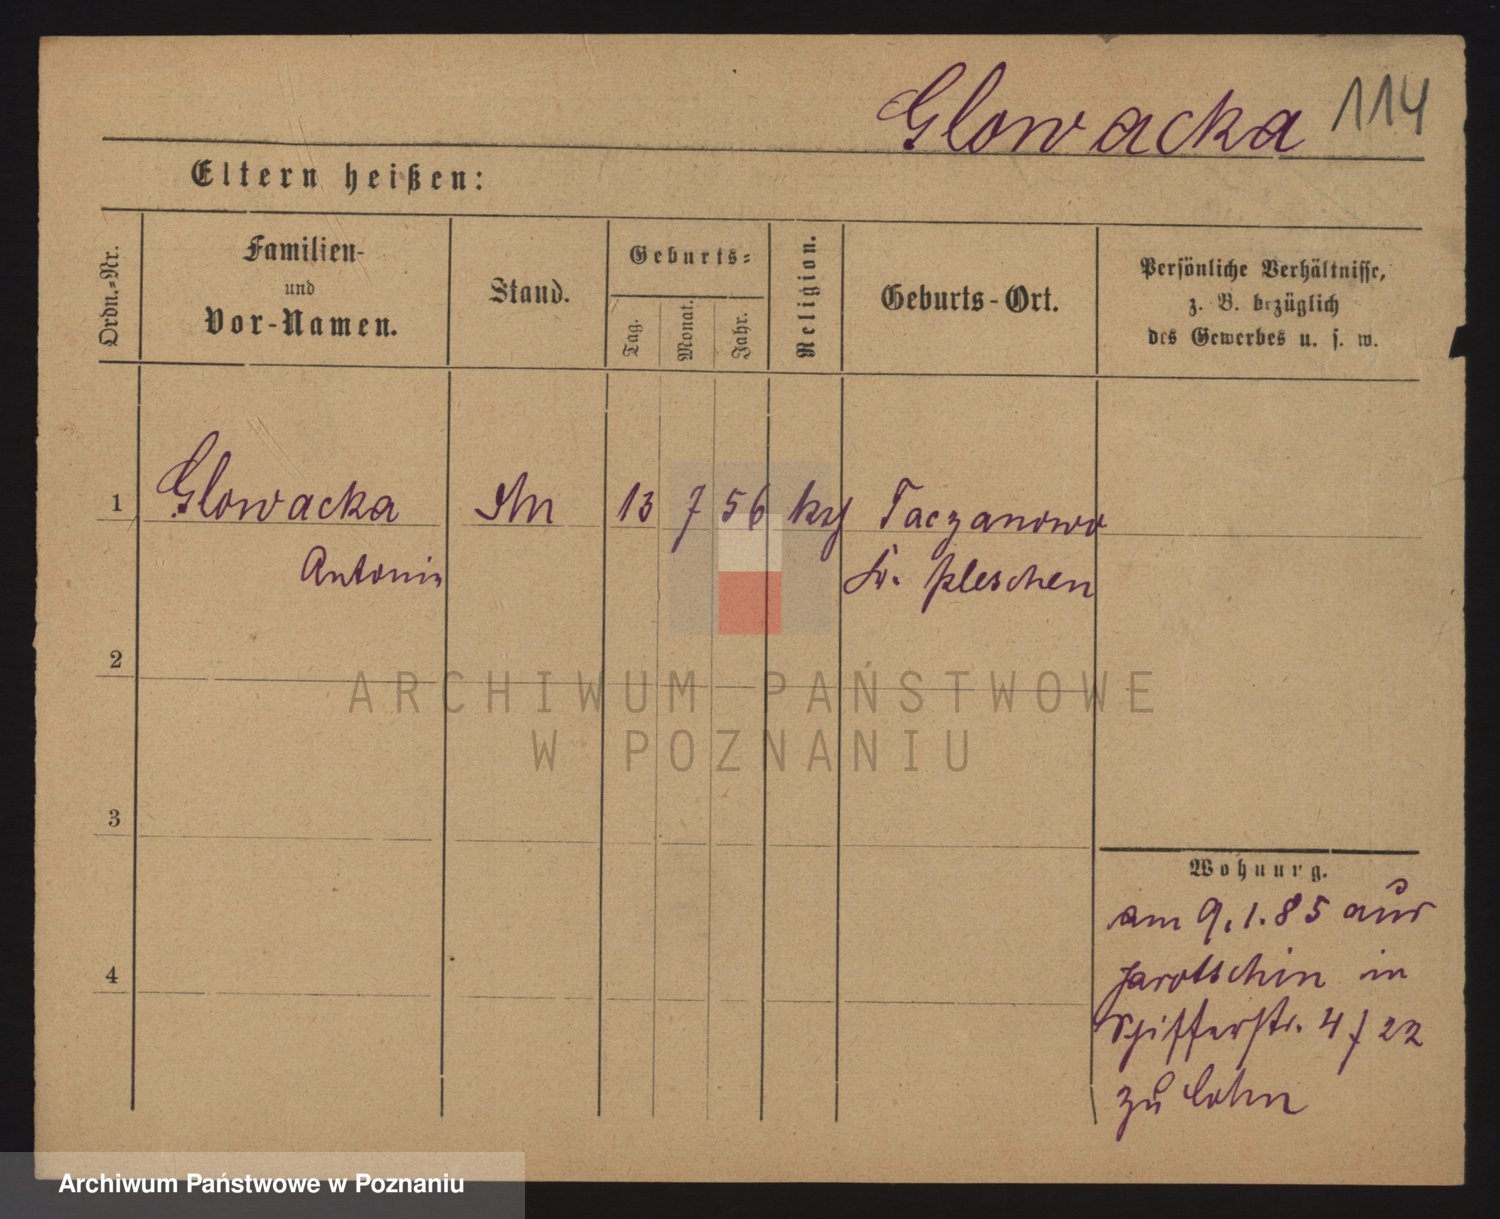 Glowacka 114
Eltern heißen:
Ordn.-Nr.
Familien-
und
Vor-Namen.
Stand.
Geburts-
Tag.
Monat.
Jahr.
Religion.
Geburts-Ort.
Persönliche Verhältnisse,
z. B. bezüglich
des Gewerbes u. s. w.
1 Glowacka 13 7 56 Taczanowo
Antonie Kr. Pleschen
2
ARCHIWUM PAŃSTWOWE
W POZNANIU
3
Wohnung.
am 9.1.85 aus
Jarotschin in
Schifferstr. 4 / 22
zu Cohn
4
Archiwum Państwowe w Poznaniu